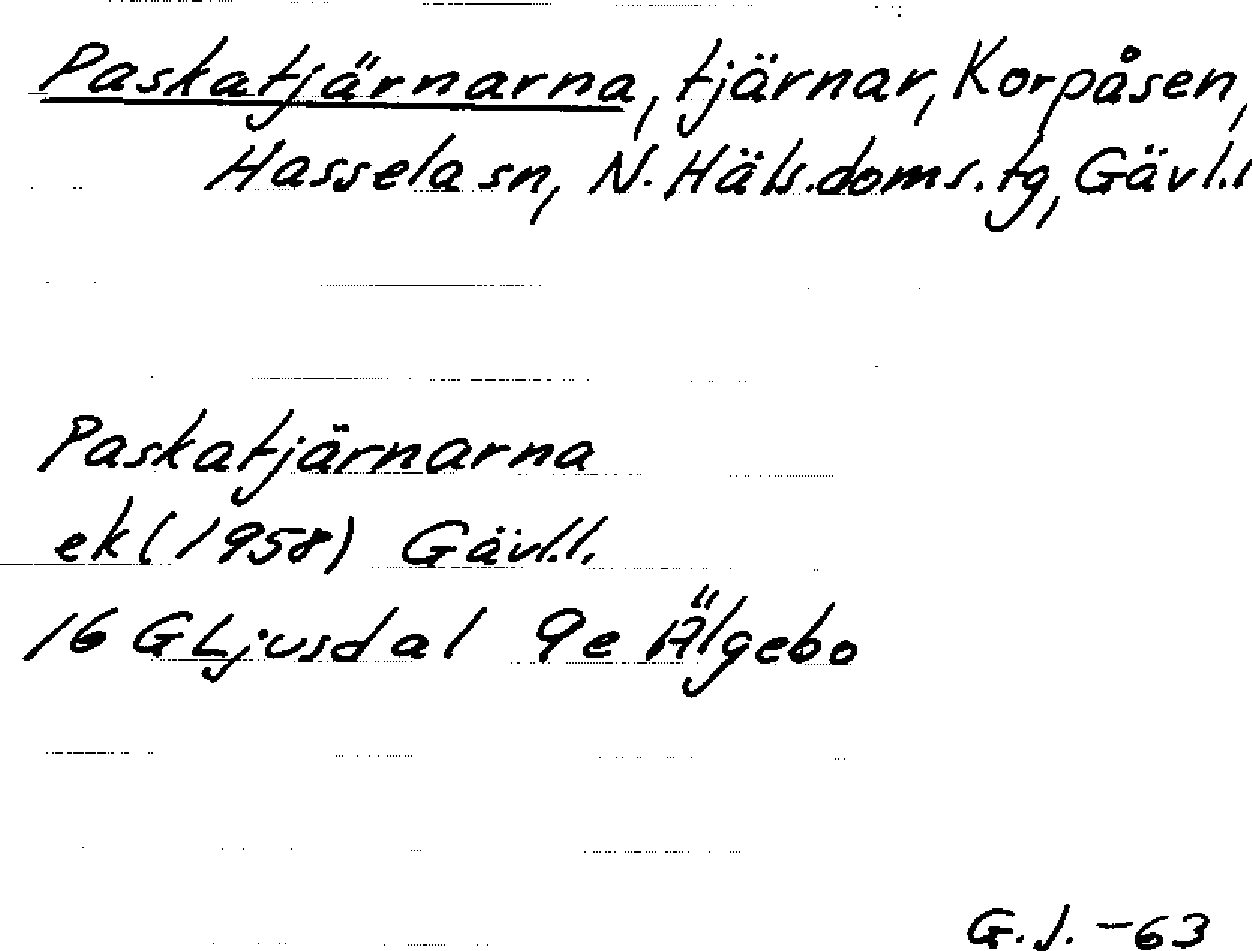 Paskatjärnarna, tjärnar, Korpåsen,
Hassela sn, N. Häls.doms.tg, Gävl.l
Paskatjärnarna
ek (1958) Gävl.l.
16 G Ljusdal 9e Älgebo
G.J. -63